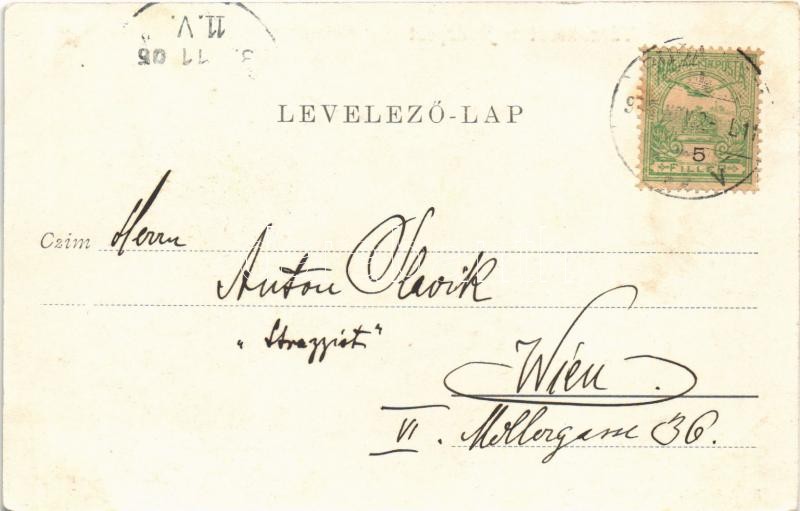 3. 11 05
11.V.
MAGYAR KIR. POSTA
LEVELEZŐ-LAP
5
FILLÉR
Czim Herrn
Anton Slavik
„Strazzist”
Wien.
VI. Mollergasse 36.